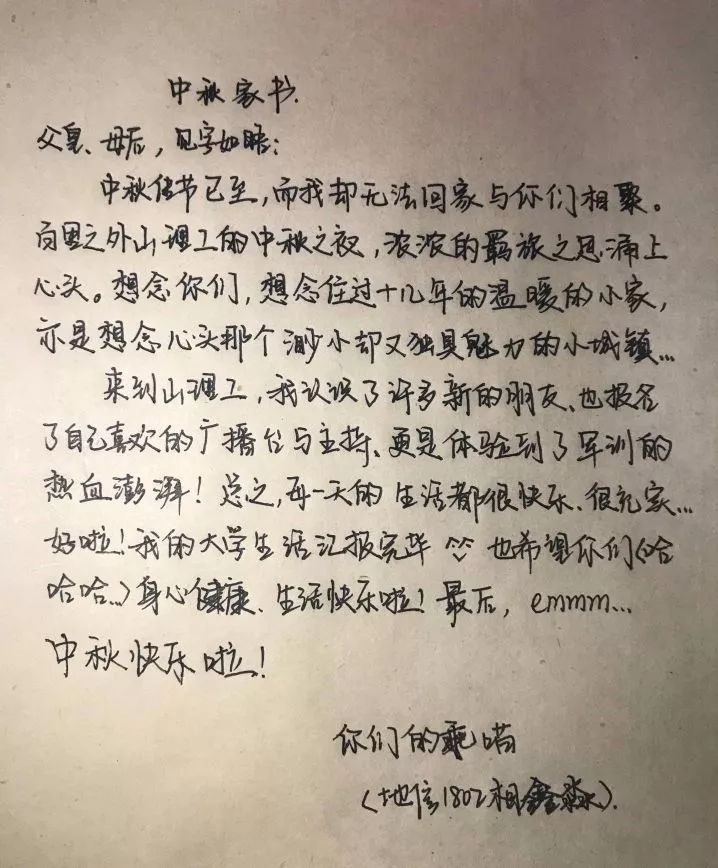 中秋家书.
父皇、母后，见字如晤：
中秋佳节已至，而我却无法回家与你们相聚。
百里之外山理工的中秋之夜，浓浓的羁旅之思涌上
心头。想念你们，想念住过十几年的温暖的小家，
亦是想念心头那个渺小却又独具魅力的小城镇...
来到山理工，我认识了许多新的朋友、也报名
了自己喜欢的广播台与主持、更是体验到了军训的
热血澎湃！总之，每一天的生活都很快乐、很充实...
好啦！我的大学生活汇报完毕 也希望你们（哈
哈哈...）身心健康、生活快乐啦！最后，emmm...
中秋快乐啦！
你们的乖
（地信1802相鑫淼）.